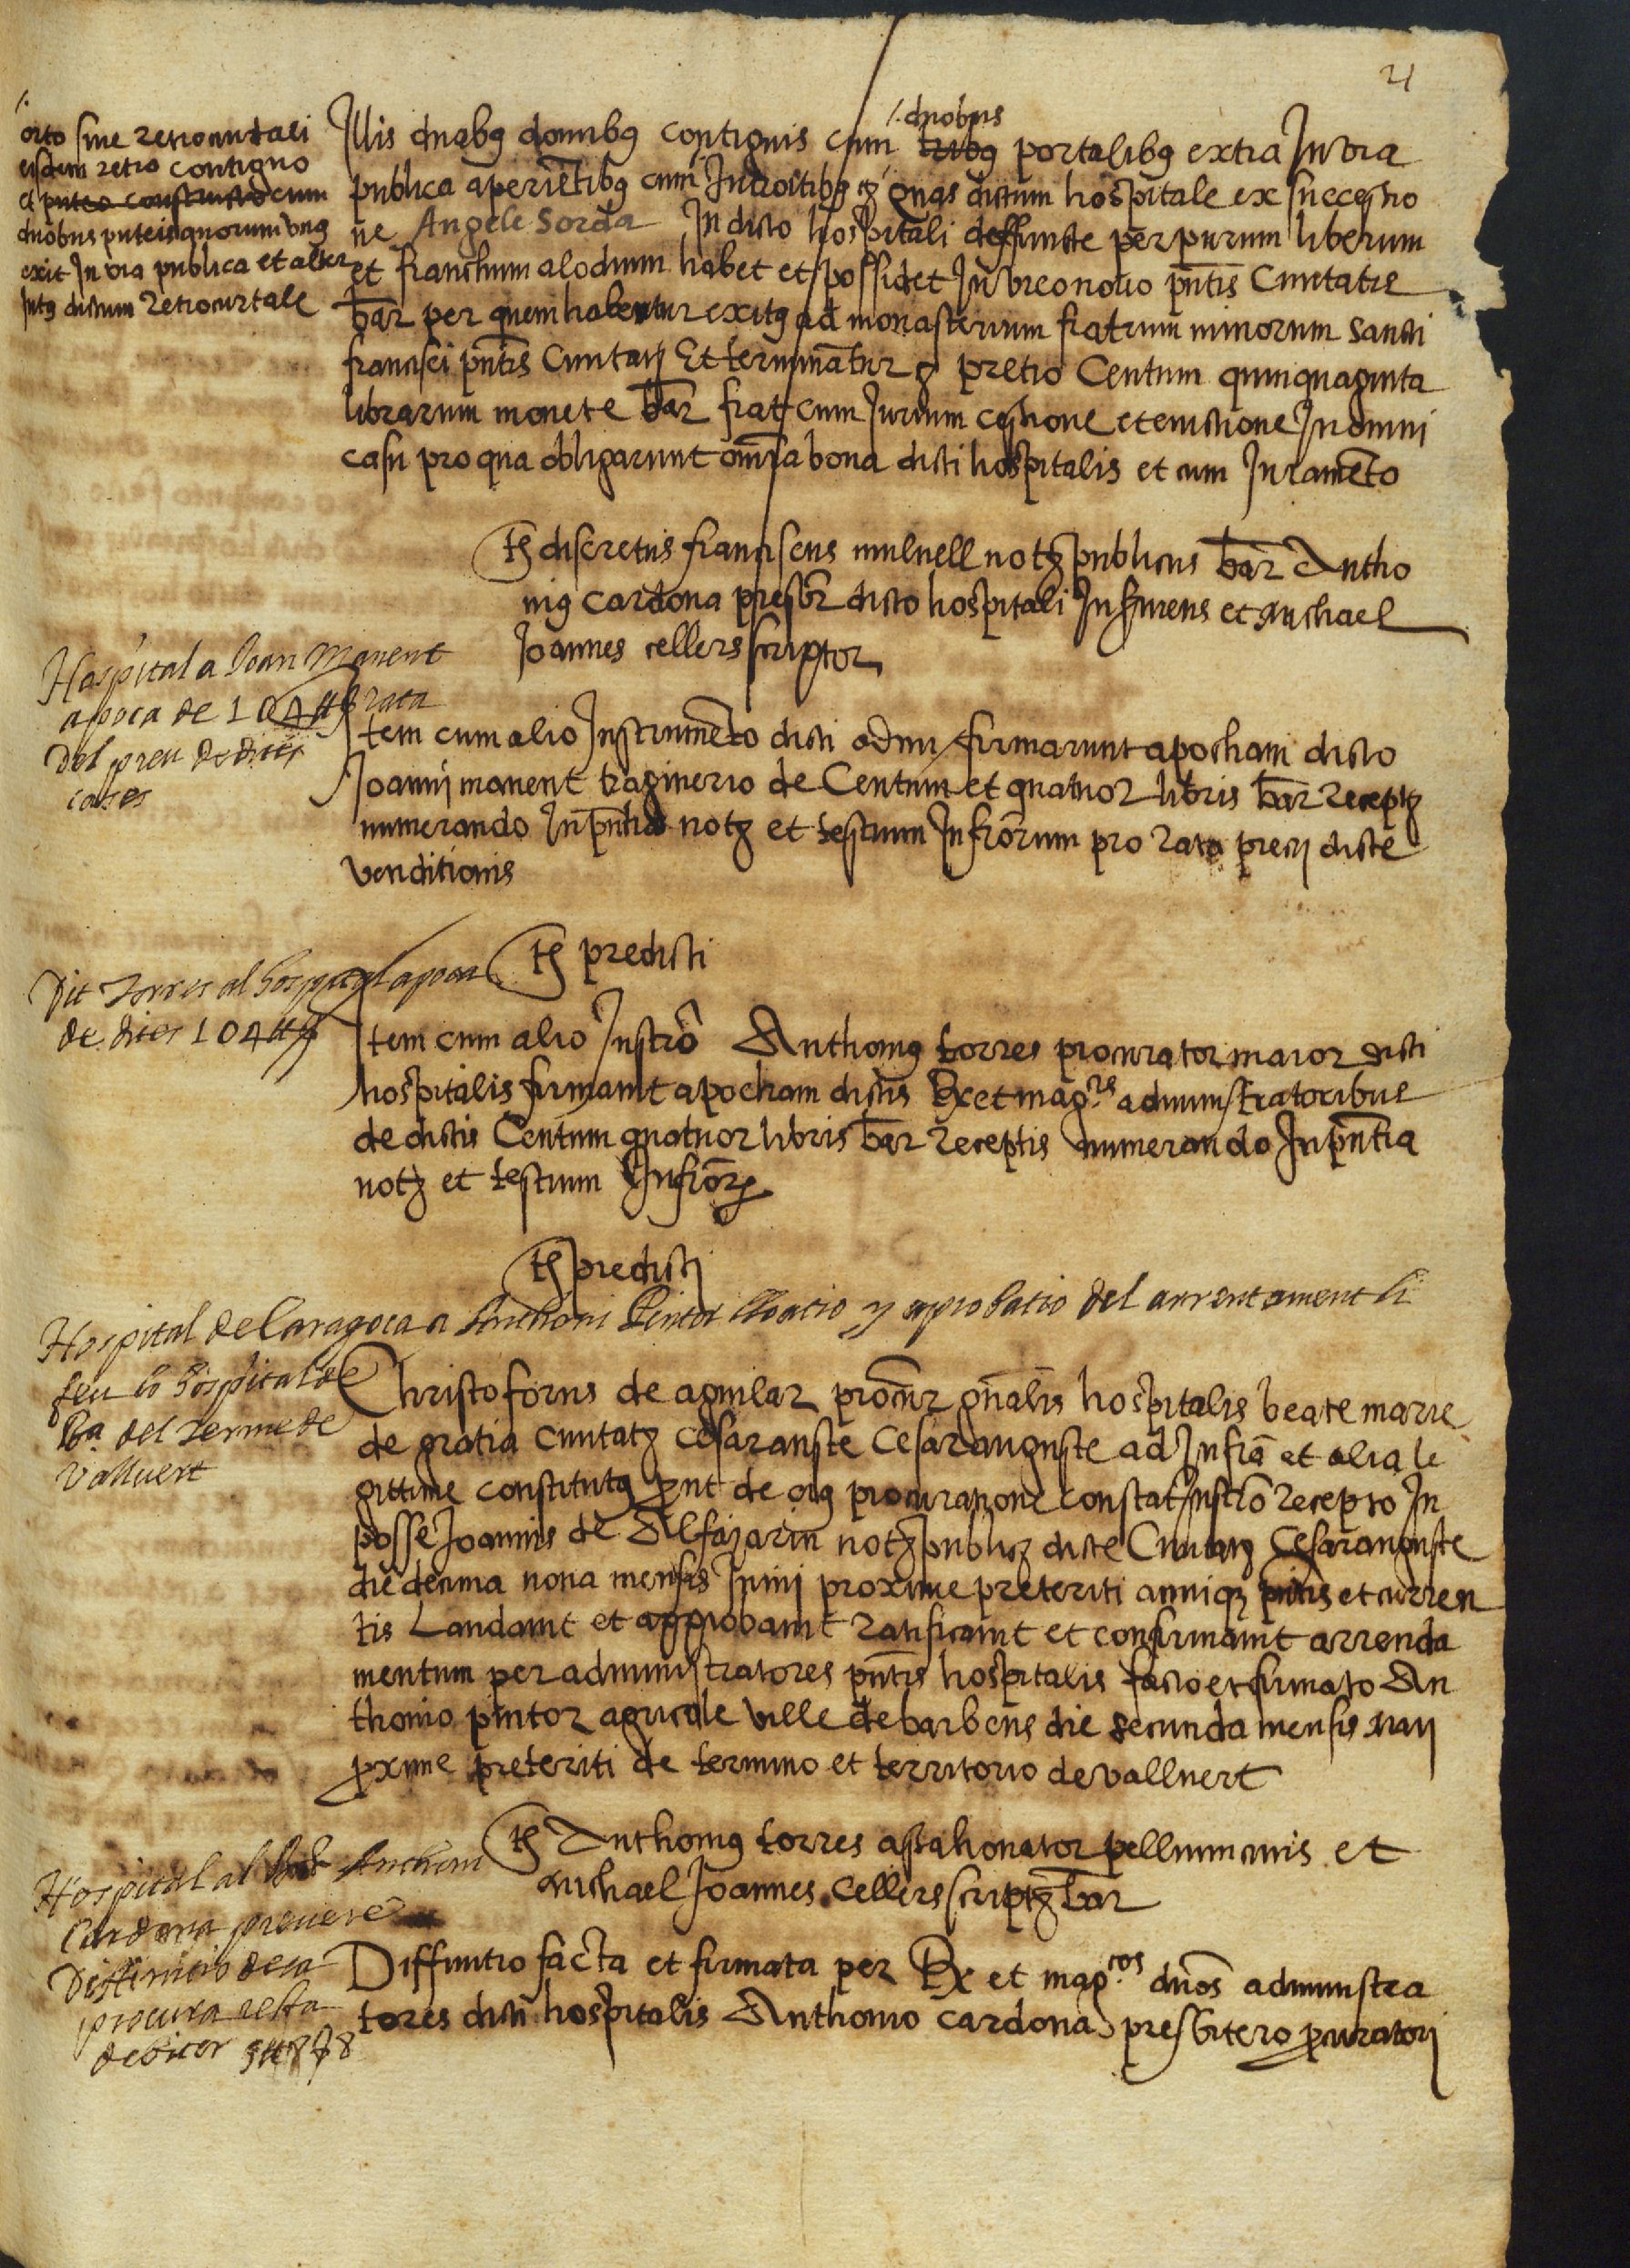 21
orto sive retrocurtali
eisdem retro contiguo
et puteo constructo cum
duobus puteis quorum unus
exit In via publica et alter
Intus dictum retrocurtale
/. duobus
Illis duabus domibus contiguis cum tribus portalibus extra In via
publica aperientibus cum Introitibus etc quas dictum hospitale ex successio
ne Angele Sorda In dicto hospitali deffuncte per purum liberum
et franchum alodium habet et possidet In vico novo pntis Civitatis
bar per quem habentur exitus ad monasterium fratrum minorum sancti
francisci pntis Civitatis Et terminatur etc pretio Centum quinquaginta
librarum monete bar fiat cum Jurium cessione et evictione In omni
casu pro qua obligarunt omnia bona dicti hospitalis et cum Juramento
ts discretus franciscus mulnell notz publicus bar Antho
nius Cardona presbr dicto hospitali Inserviens et michael
Joannes cellers scriptor
Hospital a Joan Manent
apoca de 104 ll rata
del preu de dites
cases
Item cum alio Instrumento dicti admi firmarunt apocham dicto
Joanni manent traginerio de Centum et quatuor libris bar receptz
numerando In pntia notz et testium Infrorum pro rata precij dicte
venditionis
ts predicti
Dit Torres al hospital apoca
de dites 104 ll
Item cum alio Instro Anthonius torres procurator maior dicti
hospitalis firmavit apocham dictis Rx et magcis administratoribus
de dictis Centum quatuor libris bar receptis numerando In pntia
notz et testium Infror
ts predicti
Hospital de Caragoca a Anthoni Pintor lloatio y aprobatio del arrentament li
feu lo hospital de
Ba. del terme de
Vallvert
Christoforus de aguilar procur gnalis hospitalis beate marie
de gratia Civitatz cesarauste Cesarauguste ad Infra et alia le
gittime constitutus prout de eius procuratione constat Instro recepto In
posse Joannis de Alfajarin notz publicz dicte Civitatz Cesarauguste
die decima nona mensis Junij proxime preteriti annique pntis et curren
tis Laudavit et approbavit ratificavit et confirmavit arrenda
mentum per administratores pntis hospitalis facto et firmato An
thonio pintor agricole ville de barbens die secunda mensis maij
proxime preteriti de termino et territorio de vallvert
ts Anthonius torres assahonator pellium civis et
michael Joannes Cellers scriptz bar
Hospital al Rnt Anthoni
Cardona prevere
Diffinicio de la
procura resta
debitor
Diffinitio facta et firmata per Rx et magcos dnos administra
tores dicti hospitalis Anthonio cardona presbitero procuratori